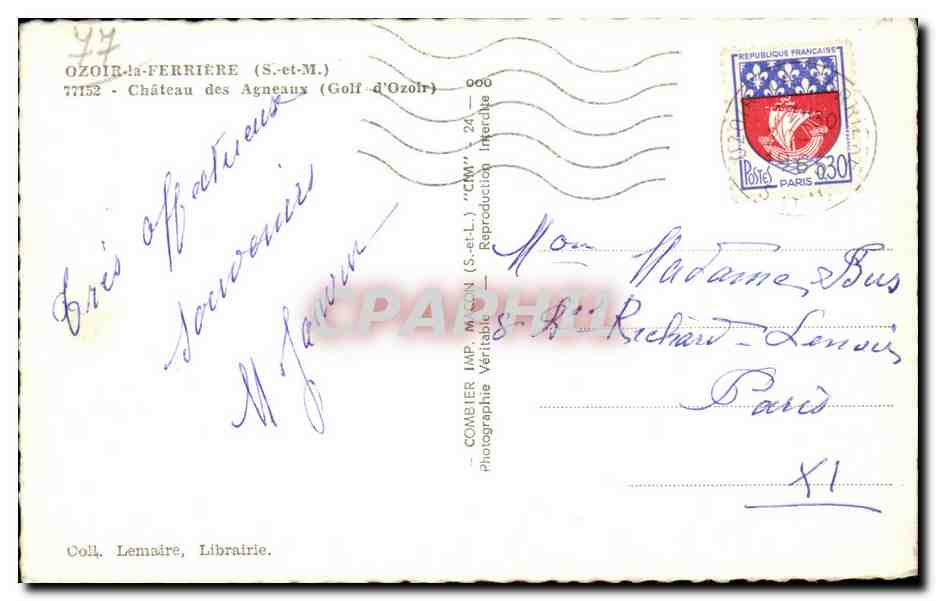 77
OZOIR-la-FERRIÈRE (S.-et-M.)
77152 - Château des Agneaux (Golf d'Ozoir)
Très affectueux
souvenirs
M
— COMBIER IMP. MACON (S.-et-L.) "CIM" - 24 — 000
Photographie Véritable — Reproduction Interdite
REPUBLIQUE FRANÇAISE
POSTES
PARIS
0,30
Mon Madame Bus
8 Richard-Lenoir
Paris
XI
CPARPHIL
Coll. Lemaire, Librairie.